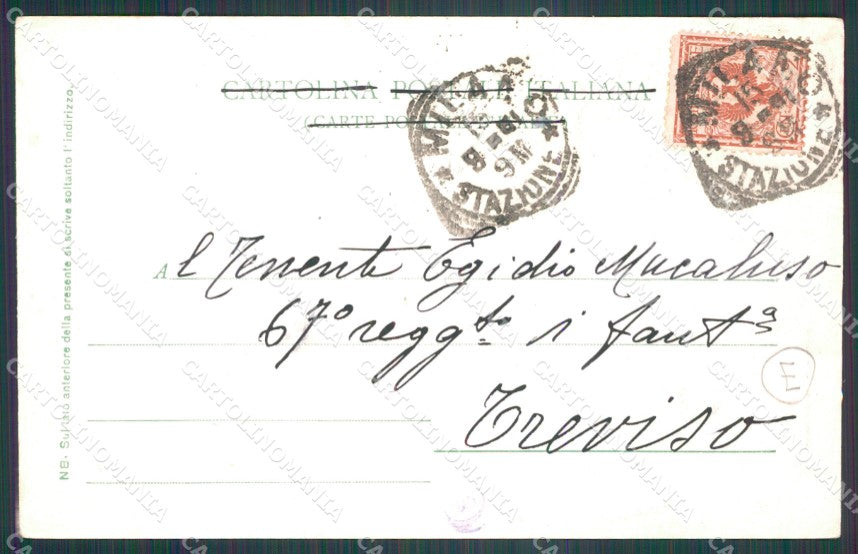 CARTOLINA POSTALE ITALIANA
(CARTE POSTALE D'ITALIE)
MILANO
9 M
* STAZIONE *
MILANO
* STAZIONE *
Al Tenente Egidio Macaluso
67º reggto fantª
Treviso
NB. Sul lato anteriore della presente si scrive soltanto l'indirizzo.
CARTOLINOMANIA